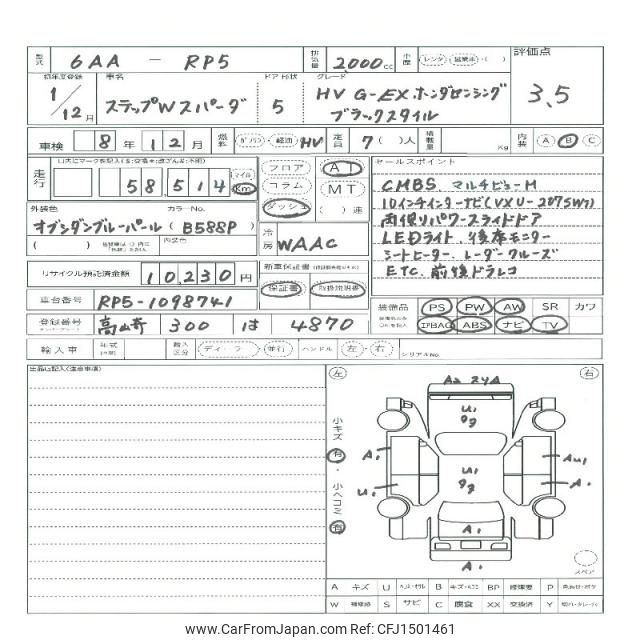 型式 6AA - RP5 排気量 2000cc 車歴 レンタ・営業車・( ) 評価点
初年度登録 車名 ドア 形状 グレード
1/12月 ステップWスパーダ 5 HV G-EX.ホンダセンシング 3.5
ブラックスタイル
車検 8年12月 燃料 ガソリン・軽油 HV 定員 7( )人 積載量 Kg 内装 A B C
走行 58,514 マイル Km フロア A セールスポイント
コラム MT CMBS. マルチビューM
ダッシュ ( )速 10インチインターナビ(VXU-207SWi)
外装色 カラーNo. 両側パワースライドドア
オブシダンブルーパール (B588P) 冷房 WAAC LEDライト.後席モニター
( ) 内装色 シートヒーター.レーダークルーズ
リサイクル預託済金額 10,230円 新車保証書 ETC.前後ドラレコ
車台番号 RP5-1098741 保証書 取扱説明書 装備品 PS PW AW SR カワ
登録番号 高崎 300 は 4870 IPBAG ABS ナビ TV
輸入車 年式 輸入区分 ディーラー・並行 ハンドル 左・右 シリアルNo.
左 右
A2 24A
U1
99
小キズ 有・小ヘコミ 有
A1 AU1
U1
99
U1 A1
A1
A1
スペア
A キズ U B キズ・ヘコミ BP 修理要 P
W 補修跡 S サビ C 腐食 XX 交換済 Y
www.CarFromJapan.com - CFJ1501461